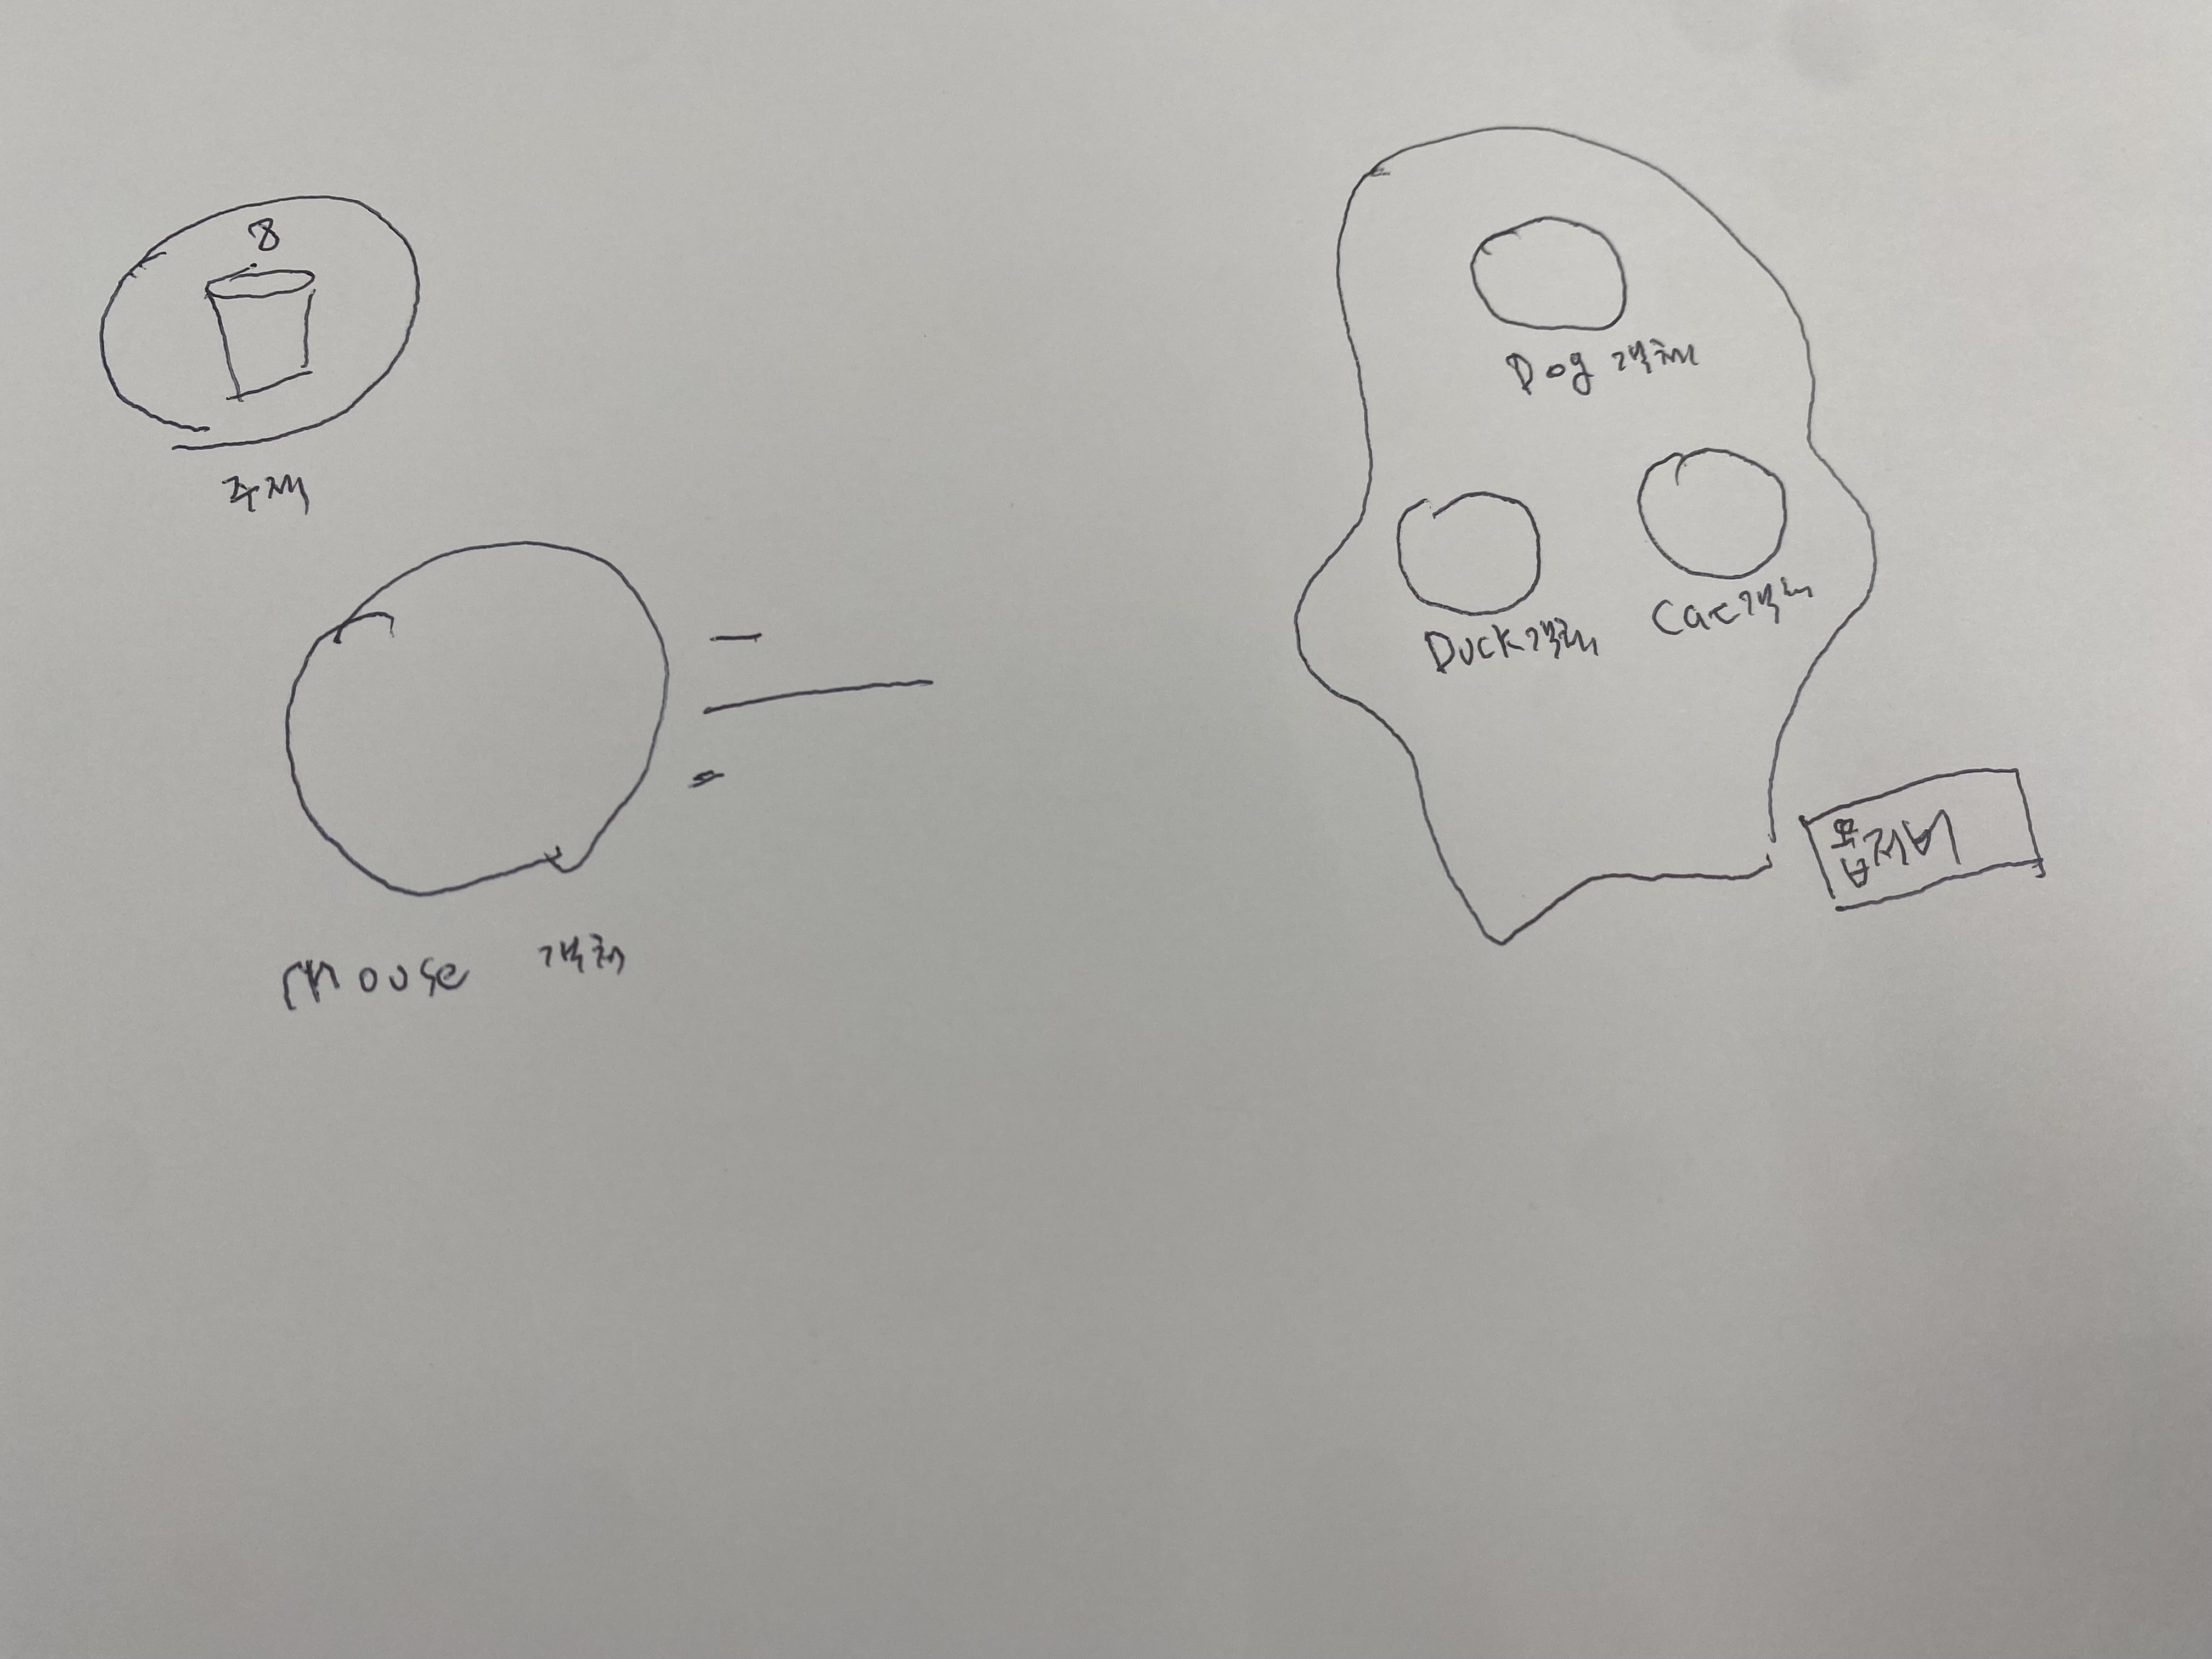 8
주제
mouse 객체
Dog 객체
Duck객체
Cat객체
옵저버